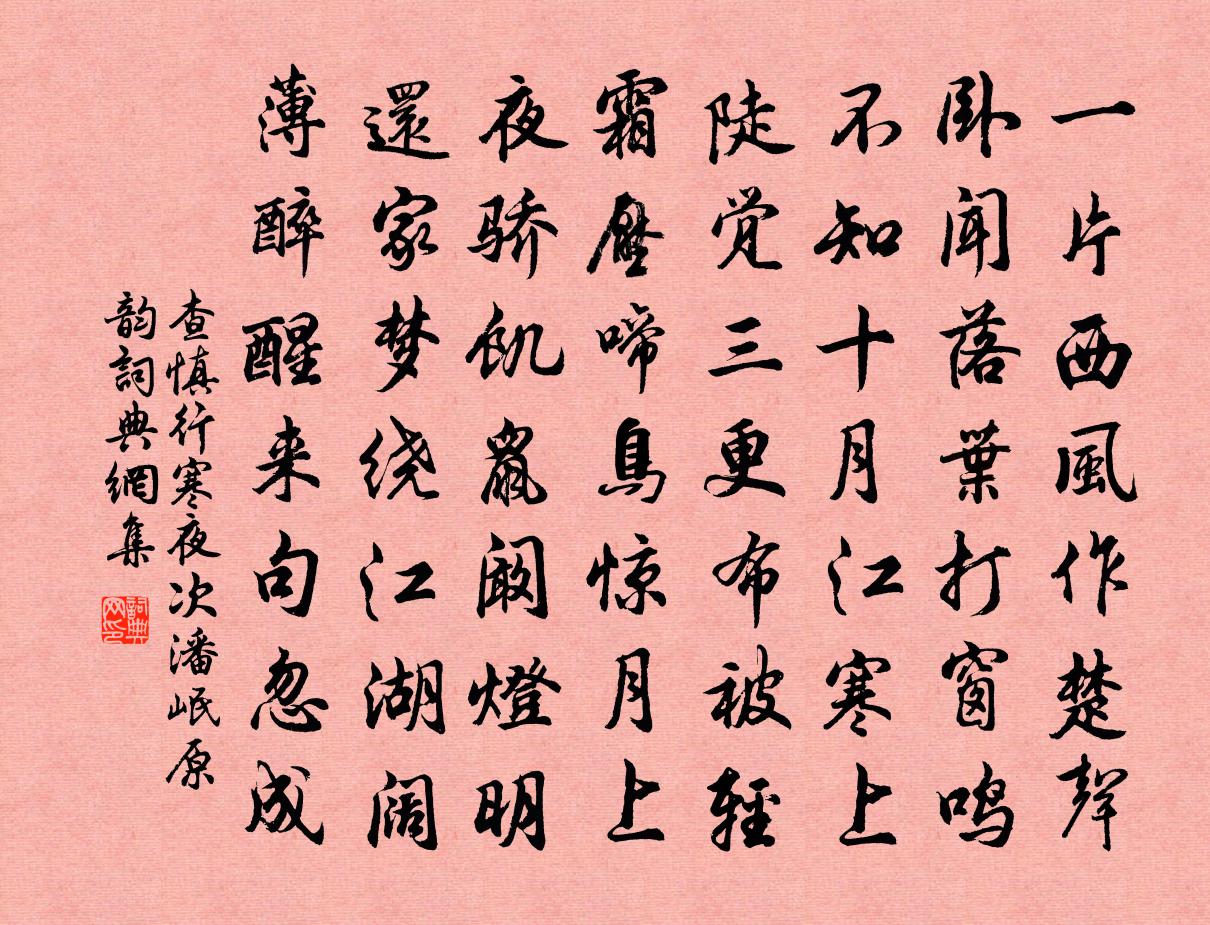 一片西風作楚聲
卧闻落葉打窗鸣
不知十月江寒上
陡觉三更布被輕
霜壓啼鳥惊月上
夜骄饥鼠阚燈明
還家梦绕江湖阔
薄醉醒来句忽成
查慎行寒夜次潘岷原
韵詞典網集
詞典网印